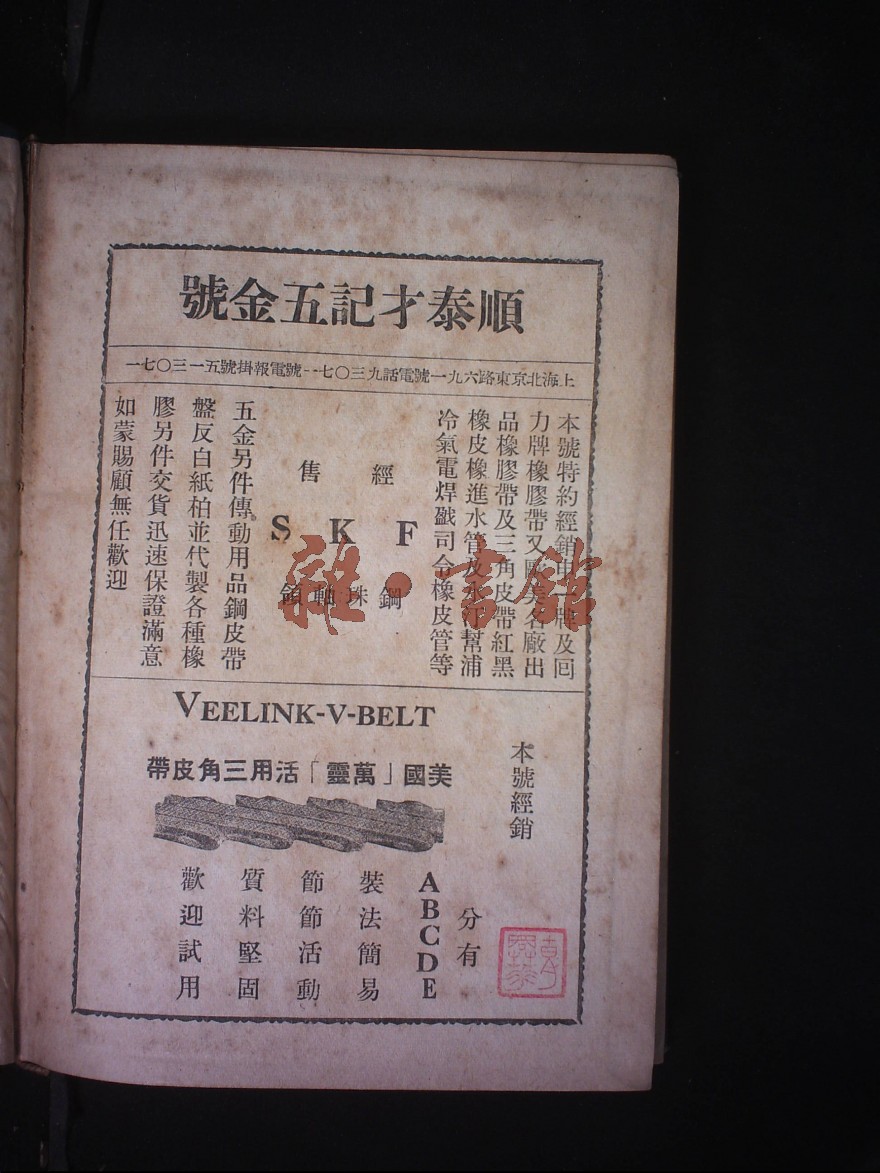 順泰才記五金號
上海北京東路六九一號電話九三〇七一—電報掛號五一三〇七一
本號特約經銷
牌及回
力牌橡膠帶又歐美名廠出
品橡膠帶及三角皮帶紅黑
橡皮橡進水管及水汀幫浦
冷氣電焊戤司令橡皮管等
經售
SKF
鋼珠軸領
五金另件傳動用品鋼皮帶
盤反白紙柏並代製各種橡
膠另件交貨迅速保證滿意
如蒙賜顧無任歡迎
VEELINK-V-BELT
本號經銷
美國「萬靈」活用三角皮帶
分有
ABCDE
裝法簡易
節節活動
質料堅固
歡迎試用
雜·書館